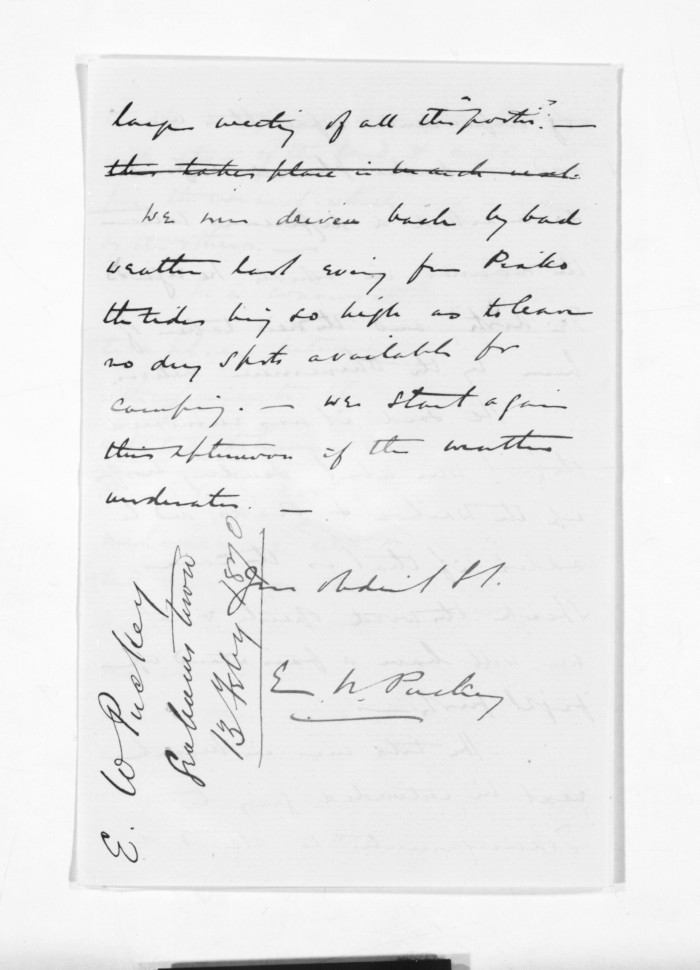 large meeting of all the "porter". —
this takes place in March next.
We were driven back by bad
weather last evening from Piako
the tides being so high as to leave
no dry spots available for
camping. — We start again
this afternoon if the weather
moderates. —
Your obedient St.
E. W. Puckey
E. W Puckey
Grahams town
13 Feby 1870